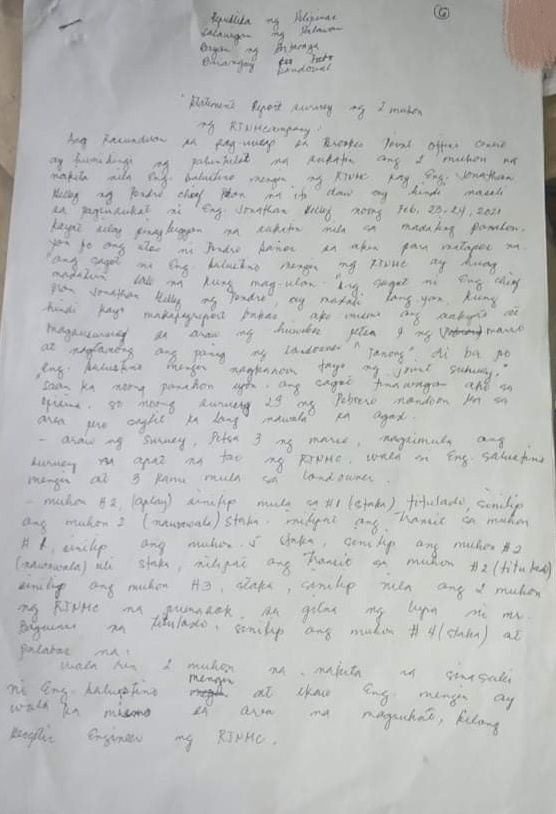 6
Republika ng Pilipinas
Lalawigan ng Palawan
Bayan ng Bataraza
Barangay Rio Tuba
Sandoval
"Statement Report survey ng 2 muhon
ng RTNMCompany"
Ang kasunduan sa pag-uusap sa Brookes Point Office Cenro
ay humihingi ng pahintulot na sukatin ang 2 muhon na
nakita nila Eng. Salustino mengen ng RTNMC kay Eng. Jonathan
Kelley ng Penro chief na ito daw ay hindi nasali
sa pagsusukat ni Eng. Jonathan Kelley noong Feb. 23-24, 2021
kayat silay pinagbigyan na sukatin nila sa madaling panahon.
yan po ang utos ni Penro sa akin para matapos na.
"ang sagot ni Eng. Salustino mengen ng RTNMC ay huwag
muna at kung mag-ulan. "ang sagot ni Eng chief
Jonathan Kelley ng Penro, ay madali lang yan, kung
hindi kayo makapagreport bukas ako mismo ang aakyat at
magsusurvey sa araw ng huwebes petsa 4 ng marso
at nagtanong ang panig ng landowner "Tanong" di ba po
"Eng. Salustino mengen nagkaroon tayo ng joint survey."
"saan ka noong panahon iyon. ang sagot tinawagan ako sa
opisina. so noong survey 23 ng Pebrero nandoon ka sa
area pero saglit ka lang nawala ka agad.
- araw ng survey, Petsa 3 ng marso, nagsimula ang
survey sa apat na tao ng RTNMC. wala si Eng. Salustino
mengen at 3 kami mula sa landowner.
- muhon #2, (aplay) sinilip mula sa #1 (staka) titulado, sinilip
ang muhon 2 (nawawala) staka. inilipat ang Transit sa muhon
#1, sinilip ang muhon 5 staka, sinilip ang muhon #2
(nawawala) uli staka, nilipat ang Transit sa muhon #2 (titulado)
sinilip ang muhon #3, staka, sinilip nila ang 2 muhon
ng RTNMC na pumasok sa gitna ng lupa ni mr.
na titulado. sinilip ang muhon #4 (staka) at
palabas na.
wala rin 2 muhon na nakita na sinasabi
ni Eng. Salustino mengen at ikaw Eng. mengen ay
wala ka mismo sa area na magsukat, bilang
Engineer ng RTNMC.